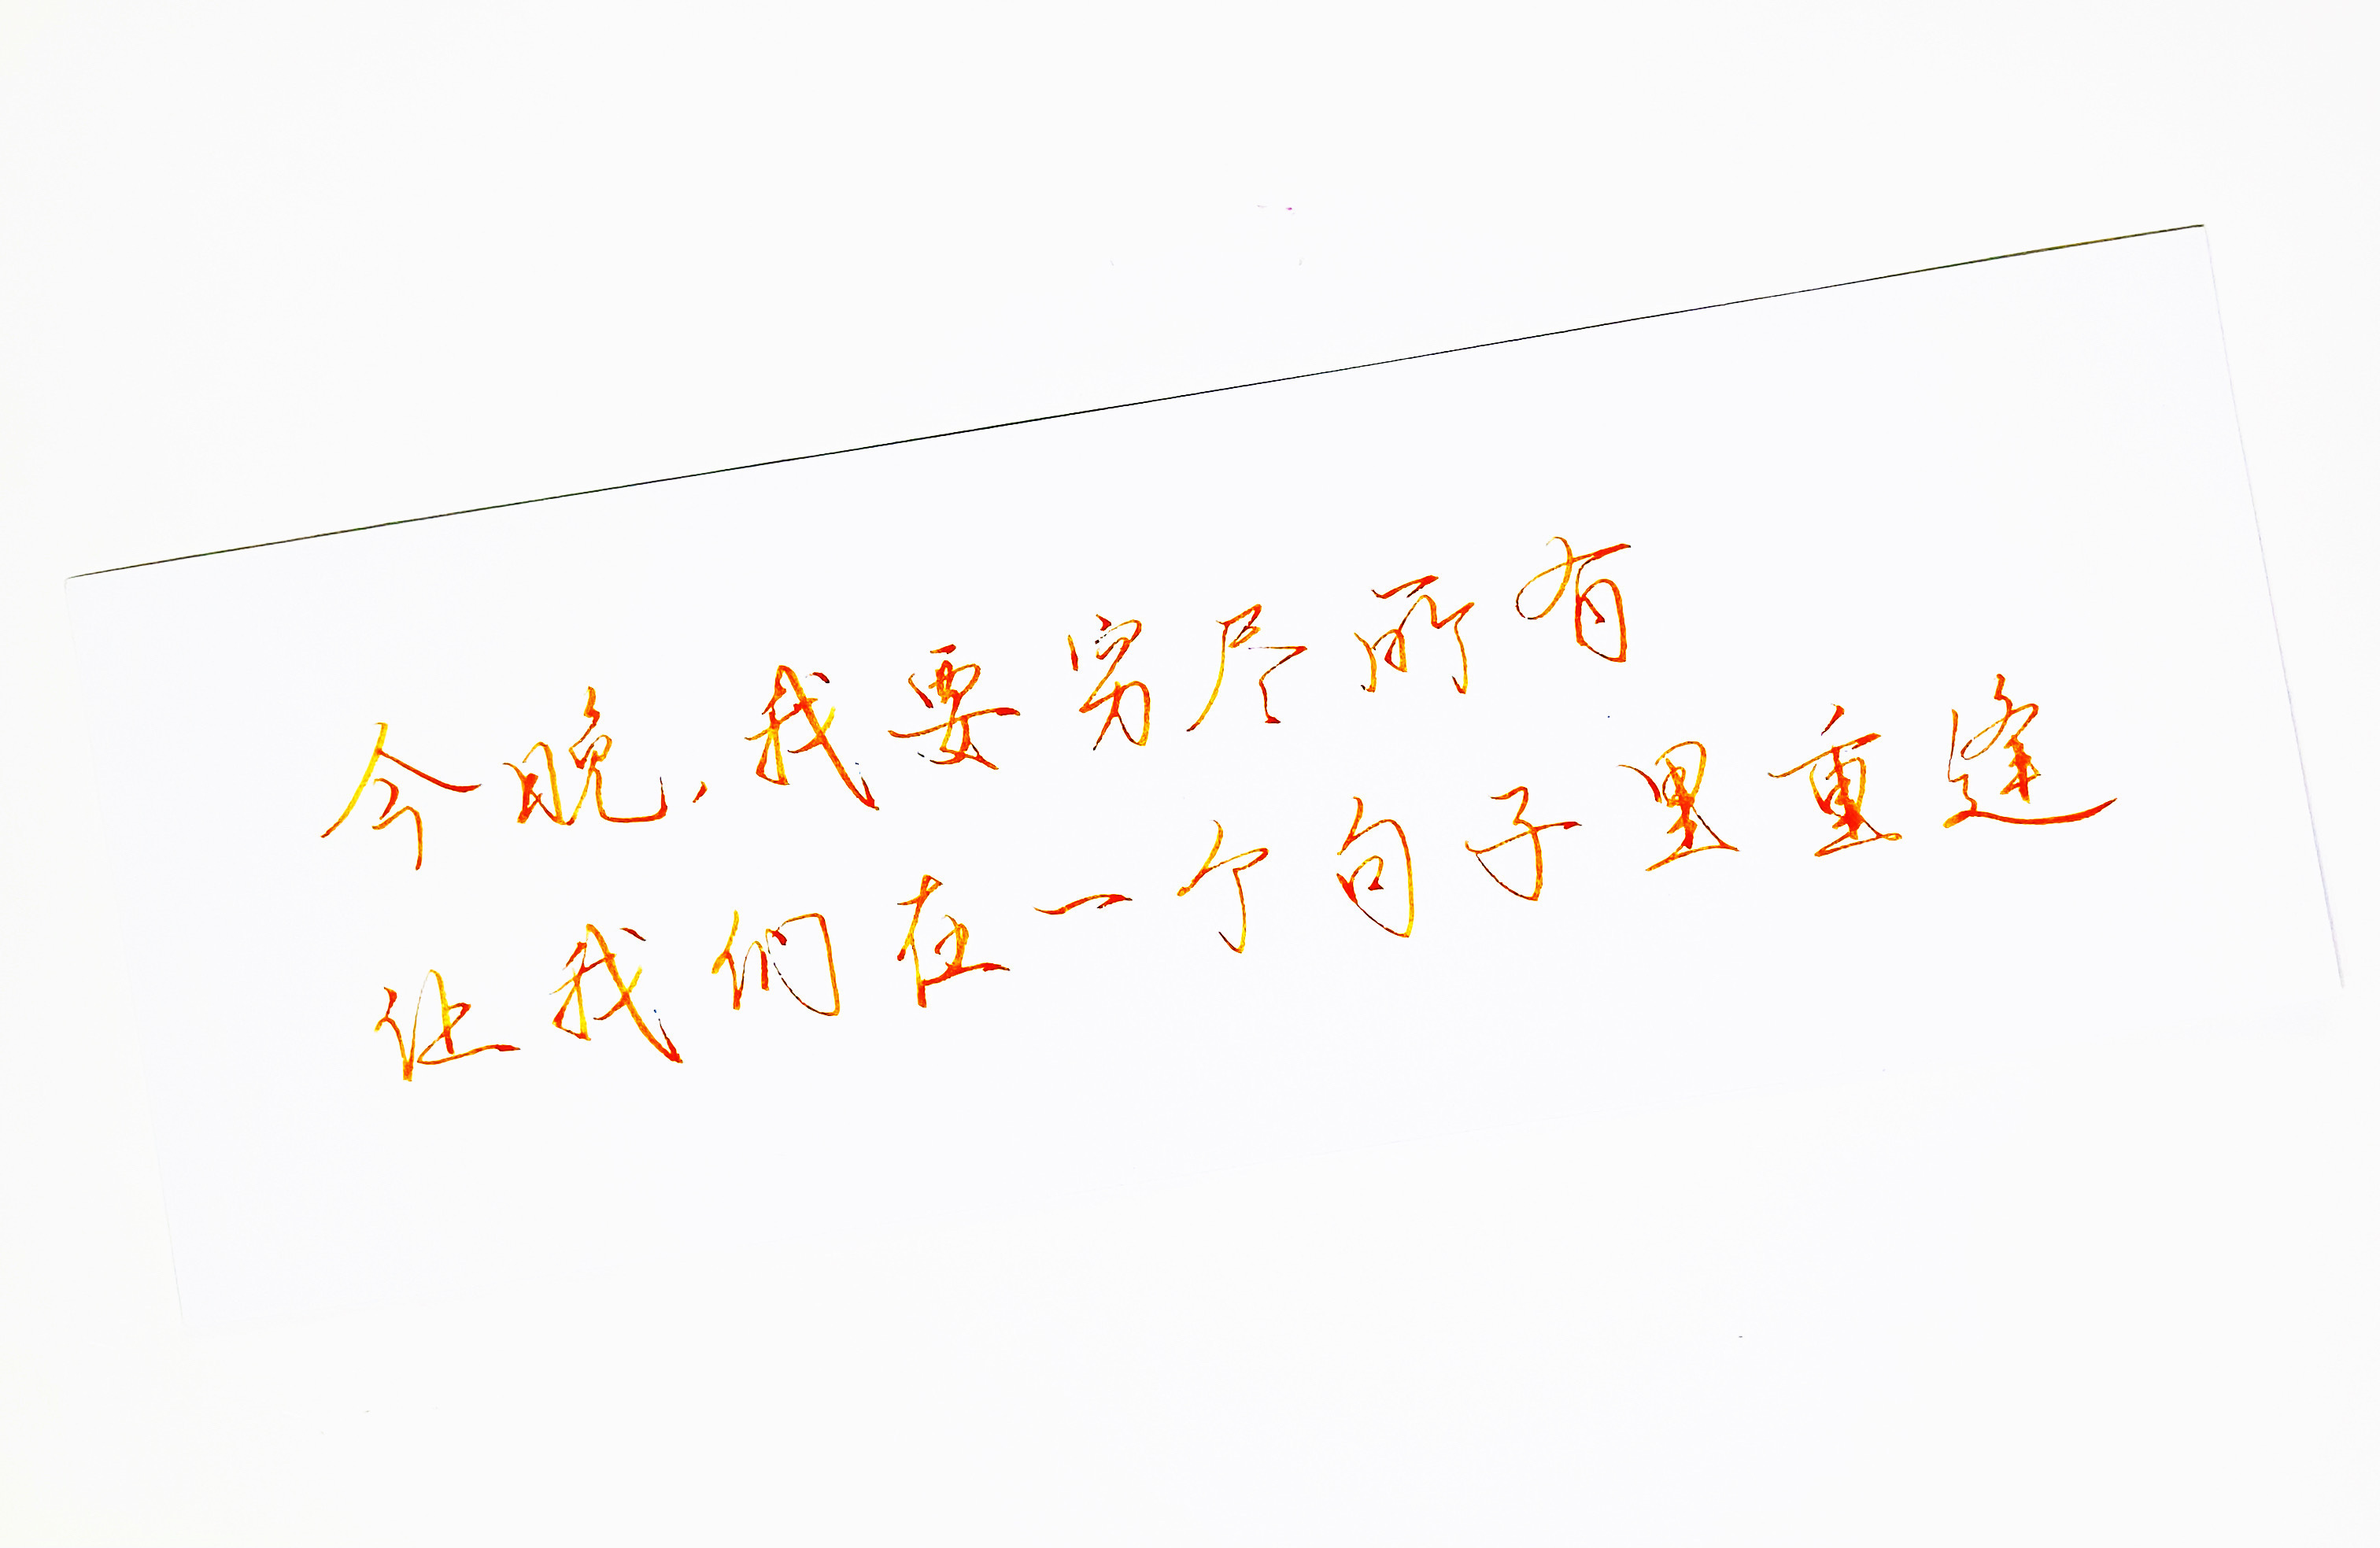 今晚,我要穷尽所有
让我们在一个句子里重逢